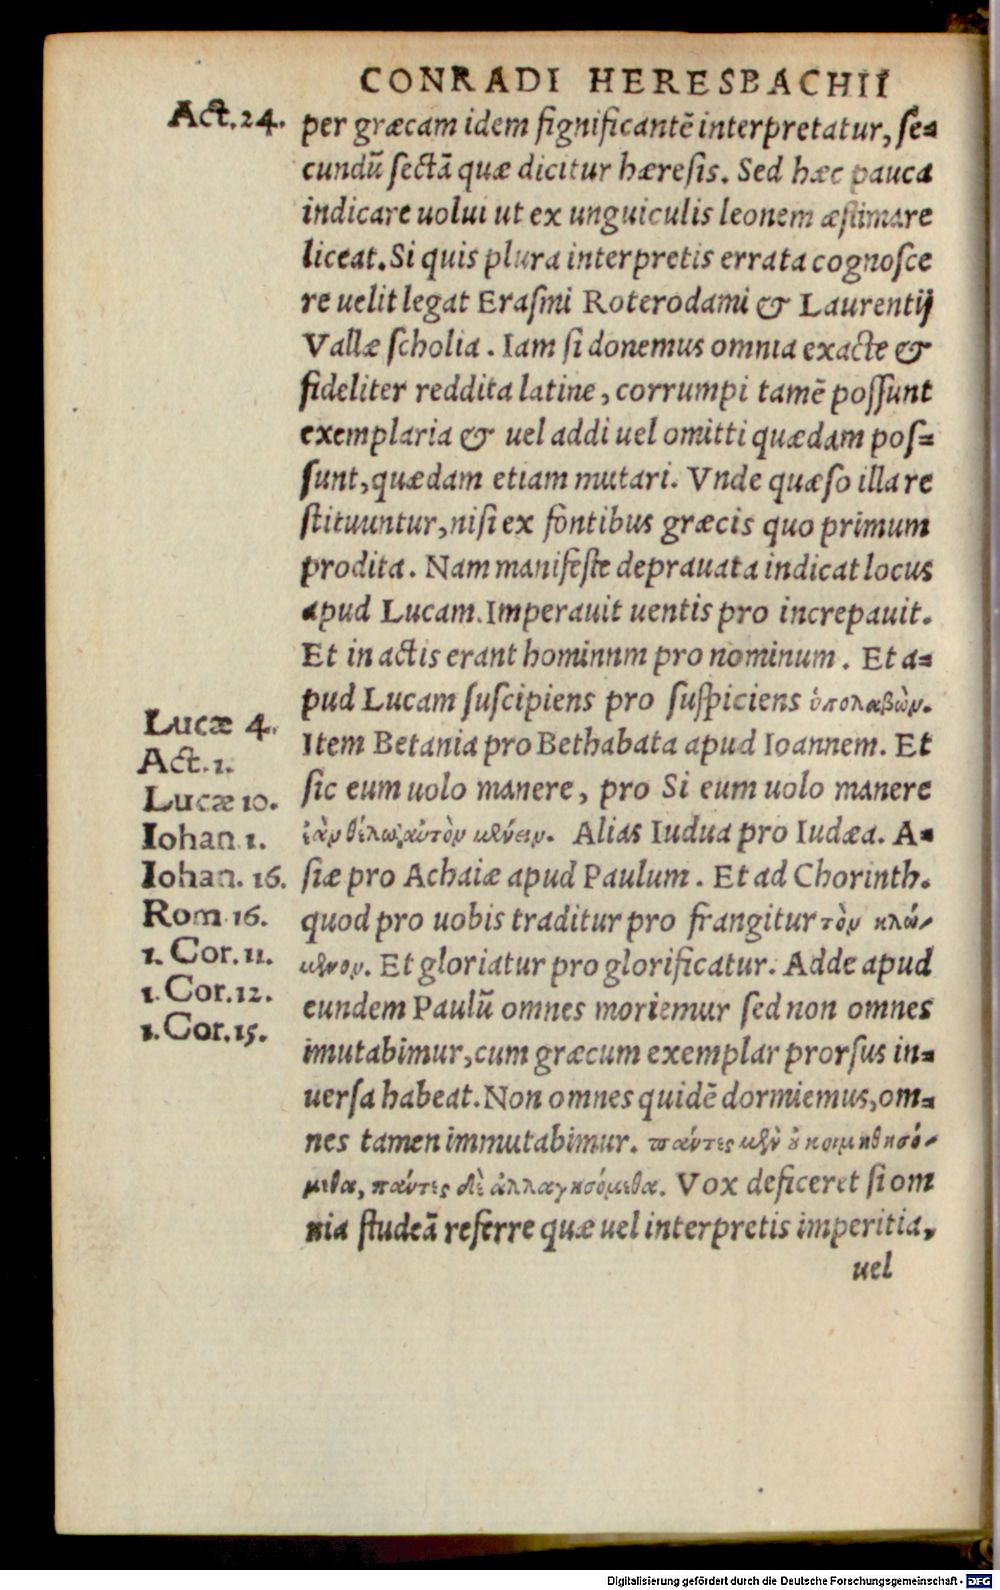 CONRADI HERESBACHII
Act.24.
per græcam idem ſignificantē interpretatur, ſe=
cundũ ſectã quæ dicitur hæreſis. Sed hæc pauca
indicare uolui ut ex unguiculis leonem æſtimare
liceat. Si quis plura interpretis errata cognoſce
re uelit legat Eraſmi Roterodami & Laurentij
Vallæ ſcholia. Iam ſi donemus omnia exacte &
fideliter reddita latine, corrumpi tamẽ poſſunt
exemplaria & uel addi uel omitti quædam poſ=
ſunt, quædam etiam mutari. Vnde quæſo illa re
ſtituuntur, niſi ex fontibus græcis quo primum
prodita. Nam manifeſte deprauata indicat locus
apud Lucam. Imperauit uentis pro increpauit.
Et in actis erant hominnm pro nominum. Et a=
pud Lucam ſuſcipiens pro ſuſpiciens ὑπολαβὼν.
Item Betania pro Bethabata apud Ioannem. Et
ſic eum uolo manere, pro Si eum uolo manere
ἐὰν θέλω αὐτὸν μένειν. Alias Iudua pro Iudæa. A=
ſiæ pro Achaiæ apud Paulum. Et ad Chorinth.
quod pro uobis traditur pro frangitur τὸν κλώ-
μενον. Et gloriatur pro glorificatur. Adde apud
eundem Paulũ omnes moriemur ſed non omnes
imutabimur, cum græcum exemplar prorſus in=
uerſa habeat. Non omnes quidẽ dormiemus, om=
nes tamen immutabimur. πάντες μὲν ὀ κοιμηθησό-
μεθα, πάντες δὲ ἀλλαγησόμεθα. Vox deficeret ſi om
nia ſtudeã referre quæ uel interpretis imperitia,
uel
Lucæ 4.
Act.1.
Lucæ 10.
Iohan.1.
Iohan. 16.
Rom.16.
1. Cor.11.
1.Cor.12.
1.Cor.15.
Digitalisierung gefördert durch die Deutsche Forschungsgemeinschaft - DFG